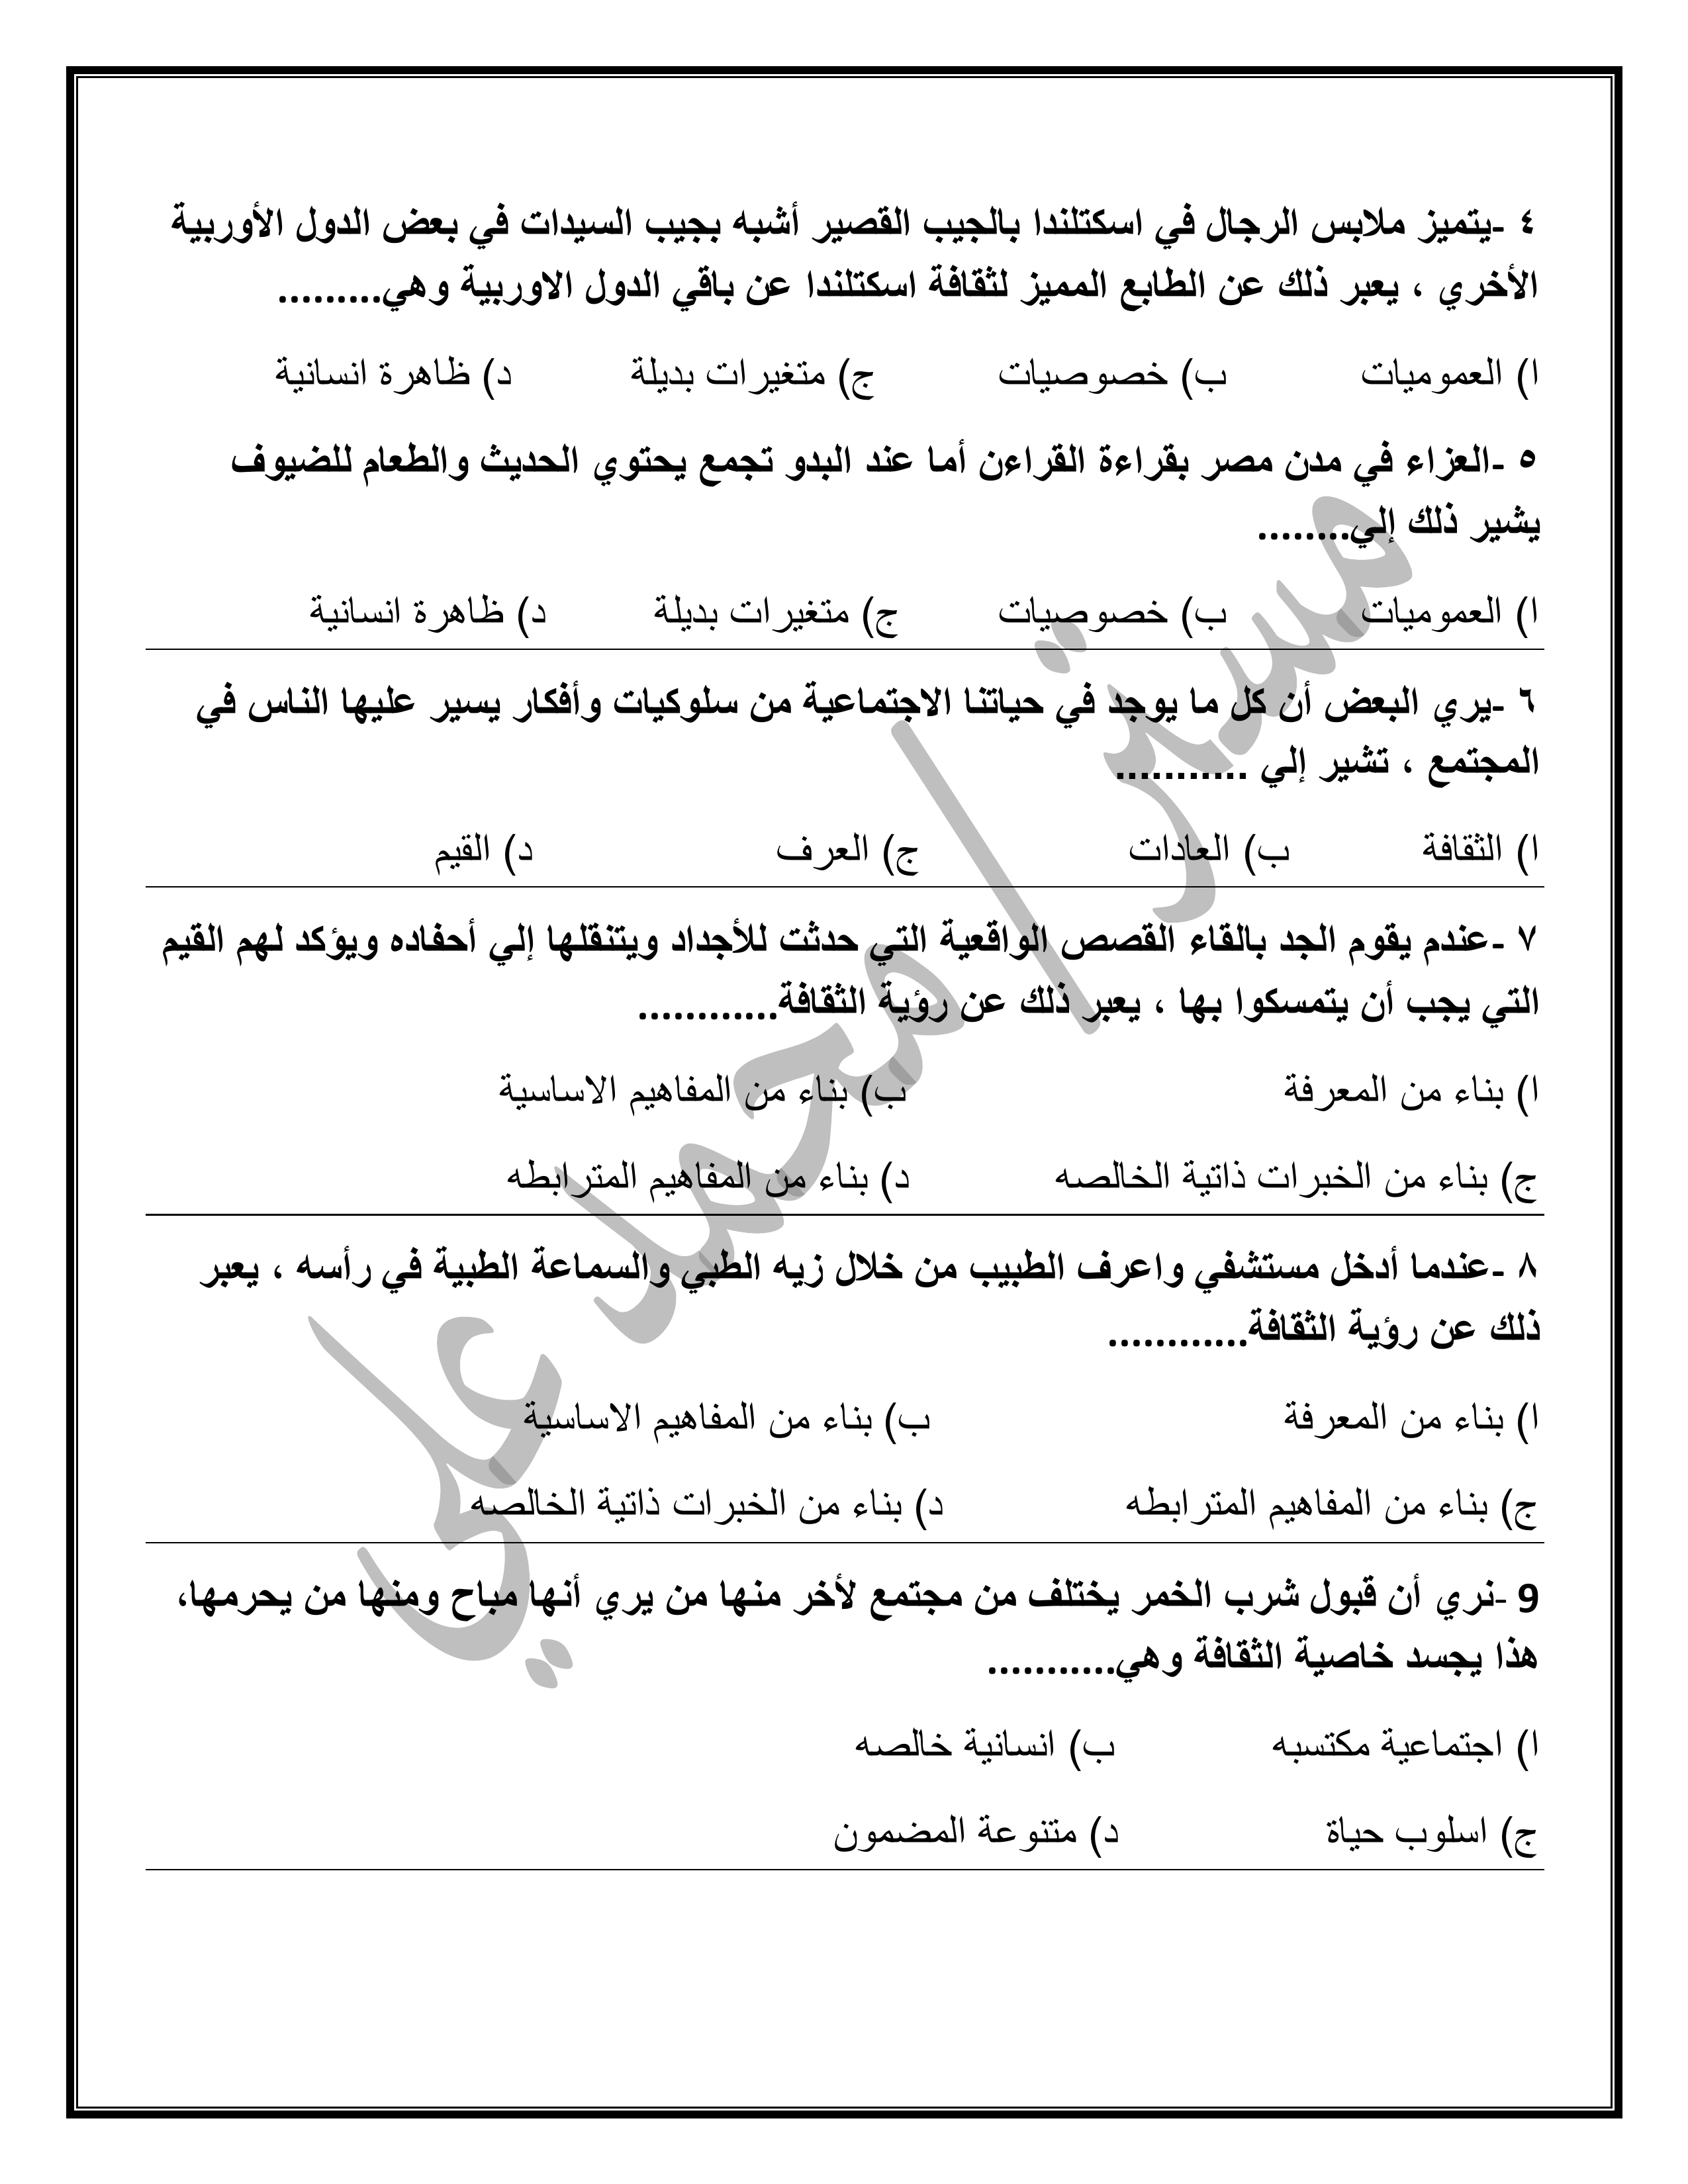 ٤ -يتميز ملابس الرجال في اسكتلندا بالجيب القصير أشبه بجيب السيدات في بعض الدول الأوربية
الأخري ، يعبر ذلك عن الطابع المميز لثقافة اسكتلندا عن باقي الدول الاوربية وهي.........
ا) العموميات ب) خصوصيات ج) متغيرات بديلة د) ظاهرة انسانية
٥ -العزاء في مدن مصر بقراءة القراءن أما عند البدو تجمع يحتوي الحديث والطعام للضيوف
يشير ذلك إلي........
ا) العموميات ب) خصوصيات ج) متغيرات بديلة د) ظاهرة انسانية
٦ -يري البعض أن كل ما يوجد في حياتنا الاجتماعية من سلوكيات وأفكار يسير عليها الناس في
المجتمع ، تشير إلي ...........
ا) الثقافة ب) العادات ج) العرف د) القيم
٧ -عندم يقوم الجد بالقاء القصص الواقعية التي حدثت للأجداد ويتنقلها إلي أحفاده ويؤكد لهم القيم
التي يجب أن يتمسكوا بها ، يعبر ذلك عن رؤية الثقافة............
ا) بناء من المعرفة ب) بناء من المفاهيم الاساسية
ج) بناء من الخبرات ذاتية الخالصه د) بناء من المفاهيم المترابطه
٨ -عندما أدخل مستشفي واعرف الطبيب من خلال زيه الطبي والسماعة الطبية في رأسه ، يعبر
ذلك عن رؤية الثقافة............
ا) بناء من المعرفة ب) بناء من المفاهيم الاساسية
ج) بناء من المفاهيم المترابطه د) بناء من الخبرات ذاتية الخالصه
9 -نري أن قبول شرب الخمر يختلف من مجتمع لأخر منها من يري أنها مباح ومنها من يحرمها،
هذا يجسد خاصية الثقافة وهي...........
ا) اجتماعية مكتسبه ب) انسانية خالصه
ج) اسلوب حياة د) متنوعة المضمون
مستر/محمد علي